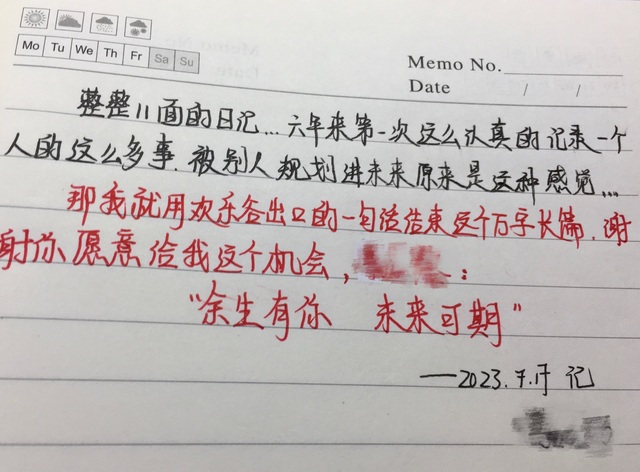 Mo Tu We Th Fr Sa Su
Memo No.
Date / /
整整11面的日记...六年来第一次这么认真的记录一个
人的这么多事.被别人规划进未来原来是这种感觉...
那我就用欢乐谷出口的一句话结束这个万字长篇.谢
谢你愿意给我这个机会，
：
“余生有你 未来可期”
—2023.7.17 记